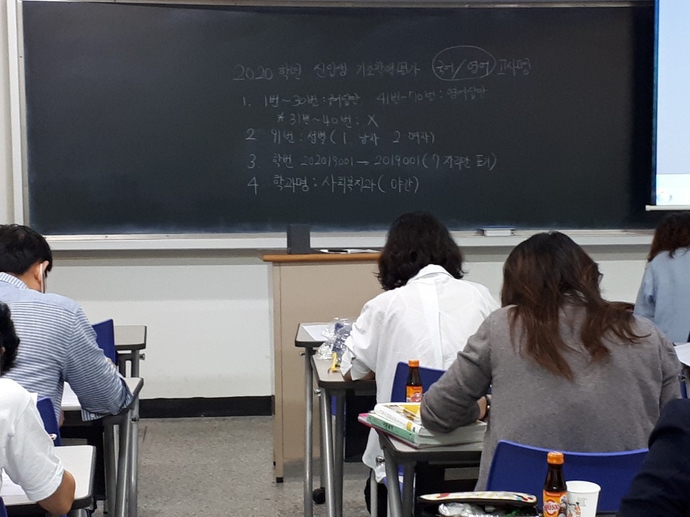 2020 학년 신입생 기초학력평가 국어/영어 고사명
1. 1번~30번 : 국어답안 41번~70번 : 영어답안
* 31번~40번 : X
2 91번 : 성별 ( 1 남자 2 여자)
3 학번 202019001 → 2019001 ( 7 자리만 표기)
4. 학과명 : 사회복지과 ( 야간)